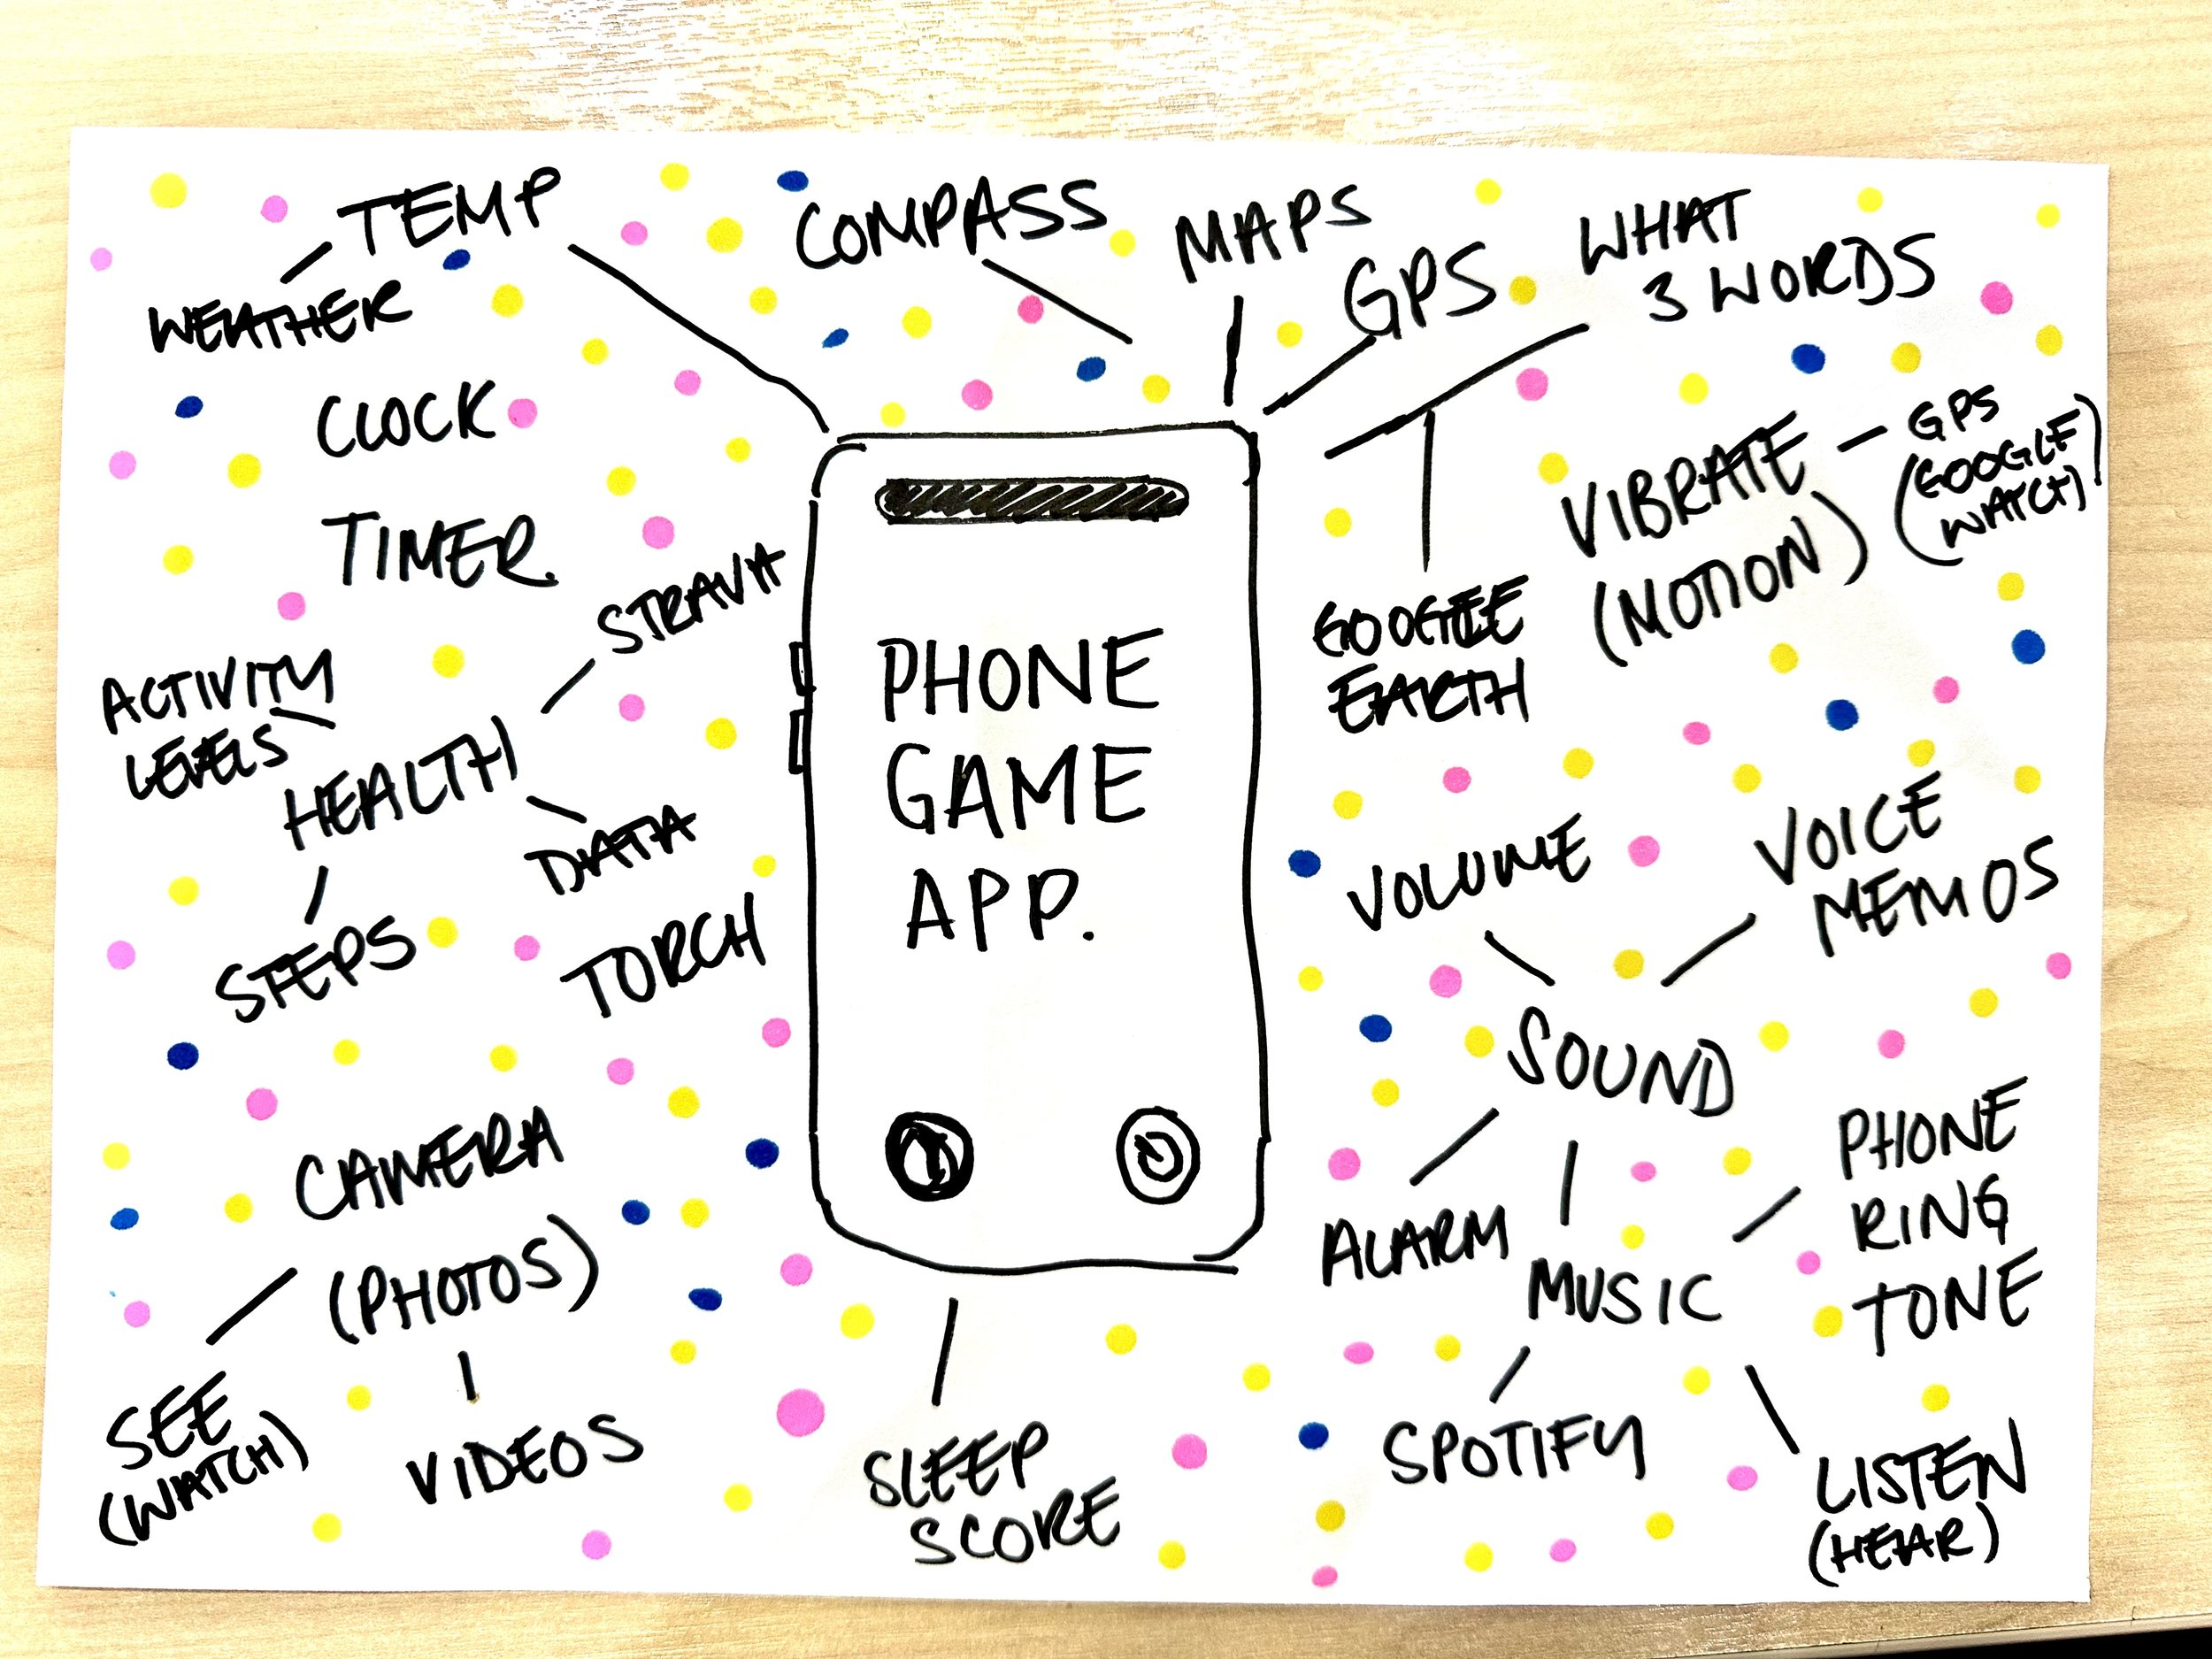 TEMP
WEATHER
COMPASS
MAPS
GPS
WHAT
3 WORDS
CLOCK
TIMER
STRAVA
ACTIVITY
LEVELS
HEALTH
DATA
STEPS
TORCH
CAMERA
(PHOTOS)
SEE
(WATCH)
VIDEOS
PHONE
GAME
APP.
SLEEP
SCORE
VIBRATE
(MOTION)
GPS
(GOOGLE)
(WATCH)
GOOGLE
EARTH
VOLUME
VOICE
MEMOS
SOUND
ALARM
MUSIC
PHONE
RING
TONE
SPOTIFY
LISTEN
(HEAR)